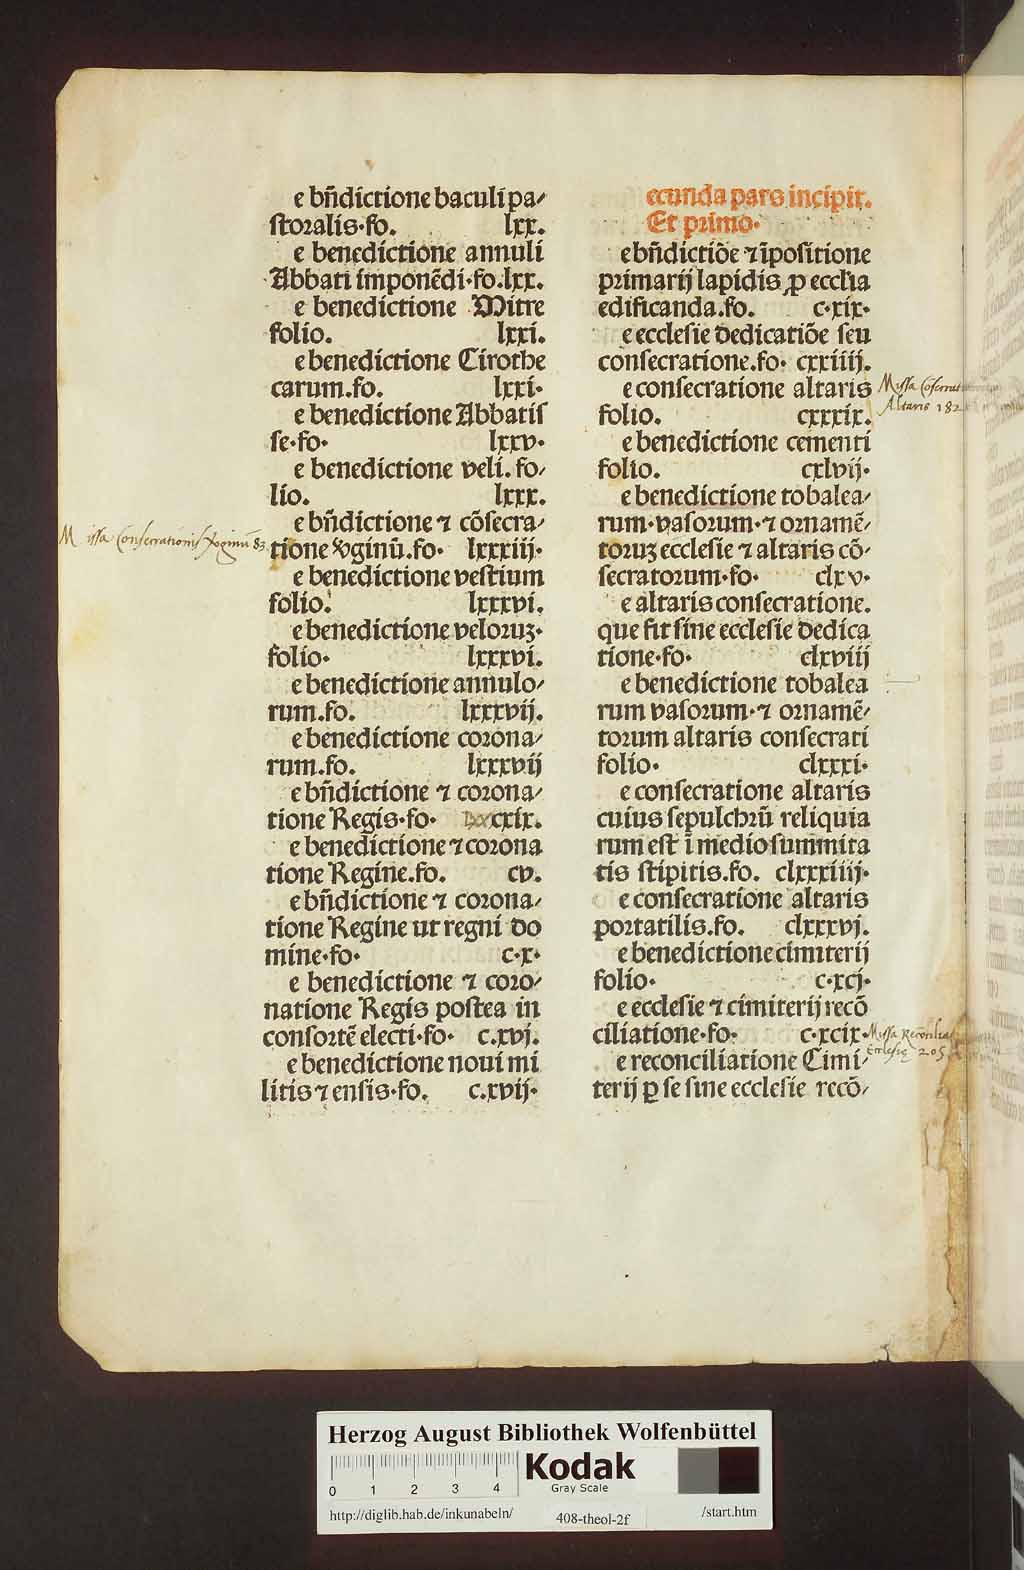 e bñdictione baculi pa⸗
ſtoralis·fo. lxx.
e benedictione annuli
Abbati imponẽdi·fo.lxx.
e benedictione Mitre
folio. lxxi.
e benedictione Cirothe
carum.fo. lxxi·
e benedictione Abbatiſ
ſe·fo· lxxv·
e benedictione veli. fo⸗
lio. lxxx.
e bñdictione ⁊ cõſecra⸗
Miſſa Conſecrationis 83
tione v̾ginũ.fo· lxxxiij·
e benedictione veſtium
folio. lxxxvi.
e benedictione veloruꝫ·
folio· lxxxvi.
e benedictione annulo⸗
rum.fo. lxxxvij.
e benedictione corona⸗
rum.fo. lxxxvij
e bñdictione ⁊ corona⸗
tione Regis·fo· xcix.
e benedictione ⁊ corona
tione Regine.fo. cv.
e bñdictione ⁊ corona⸗
tione Regine ut regni do
mine·fo· c·x·
e benedictione ⁊ coro⸗
natione Regis poſtea in
conſortẽ electi·fo· c.xvj.
e benedictione noui mi
litis ⁊ enſis·fo. c.xvij·
ecunda pars incipit.
Et primo·
e bñdictiõe ⁊ ĩpoſitione
primarij lapidis ꝓ eccľia
edificanda.fo. c·xix·
e eccleſie dedicatiõe ſeu
conſecratione.fo· cxxiiij.
e conſecratione altaris
Miſſa
Altaris 182
folio. cxxxix.
e benedictione cementi
folio. cxlvij·
e benedictione tobalea⸗
rum·vaſorum·⁊ ornamẽ⸗
toruꝫ eccleſie ⁊ altaris cõ⸗
ſecratorum·fo· clxv·
e altaris conſecratione.
que fit ſine eccleſie dedica
tione·fo· clxviij
e benedictione tobalea
rum vaſorum·⁊ ornamẽ⸗
torum altaris conſecrati
folio· clxxxi·
e conſecratione altaris
cuius ſepulchrũ reliquia
rum eſt ĩ medio ſummita
tis ſtipitis.fo. clxxxiiij·
e conſecratione altaris
portatilis.fo. clxxxvj.
e benedictione cimiterij
folio· c·xcj·
e eccleſie ⁊ cimiterij recõ
ciliatione·fo· c·xcix·
Miſſa
Eccleſię 205
e reconciliatione Cimi⸗
terij ꝑ ſe ſine eccleſie recõ⸗
Herzog August Bibliothek Wolfenbüttel
Kodak
Gray Scale
0 1 2 3 4
http://diglib.hab.de/inkunabeln/ 408-theol-2f /start.htm